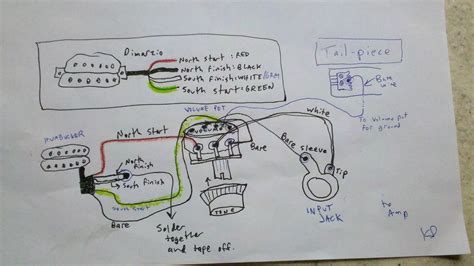 Dimarzio
North start: RED
North finish: BLACK
South finish: WHITE
South start: GREEN
Tail-piece
Bare
wire
To Volume pot
for ground
VOLUME POT
HUMBUCKER
North start
North
finish
South finish
South start
Bare
Bare
white
Bare sleeve
Tip
TONE
INPUT
JACK
to
Amp
Solder
together
and tape off.